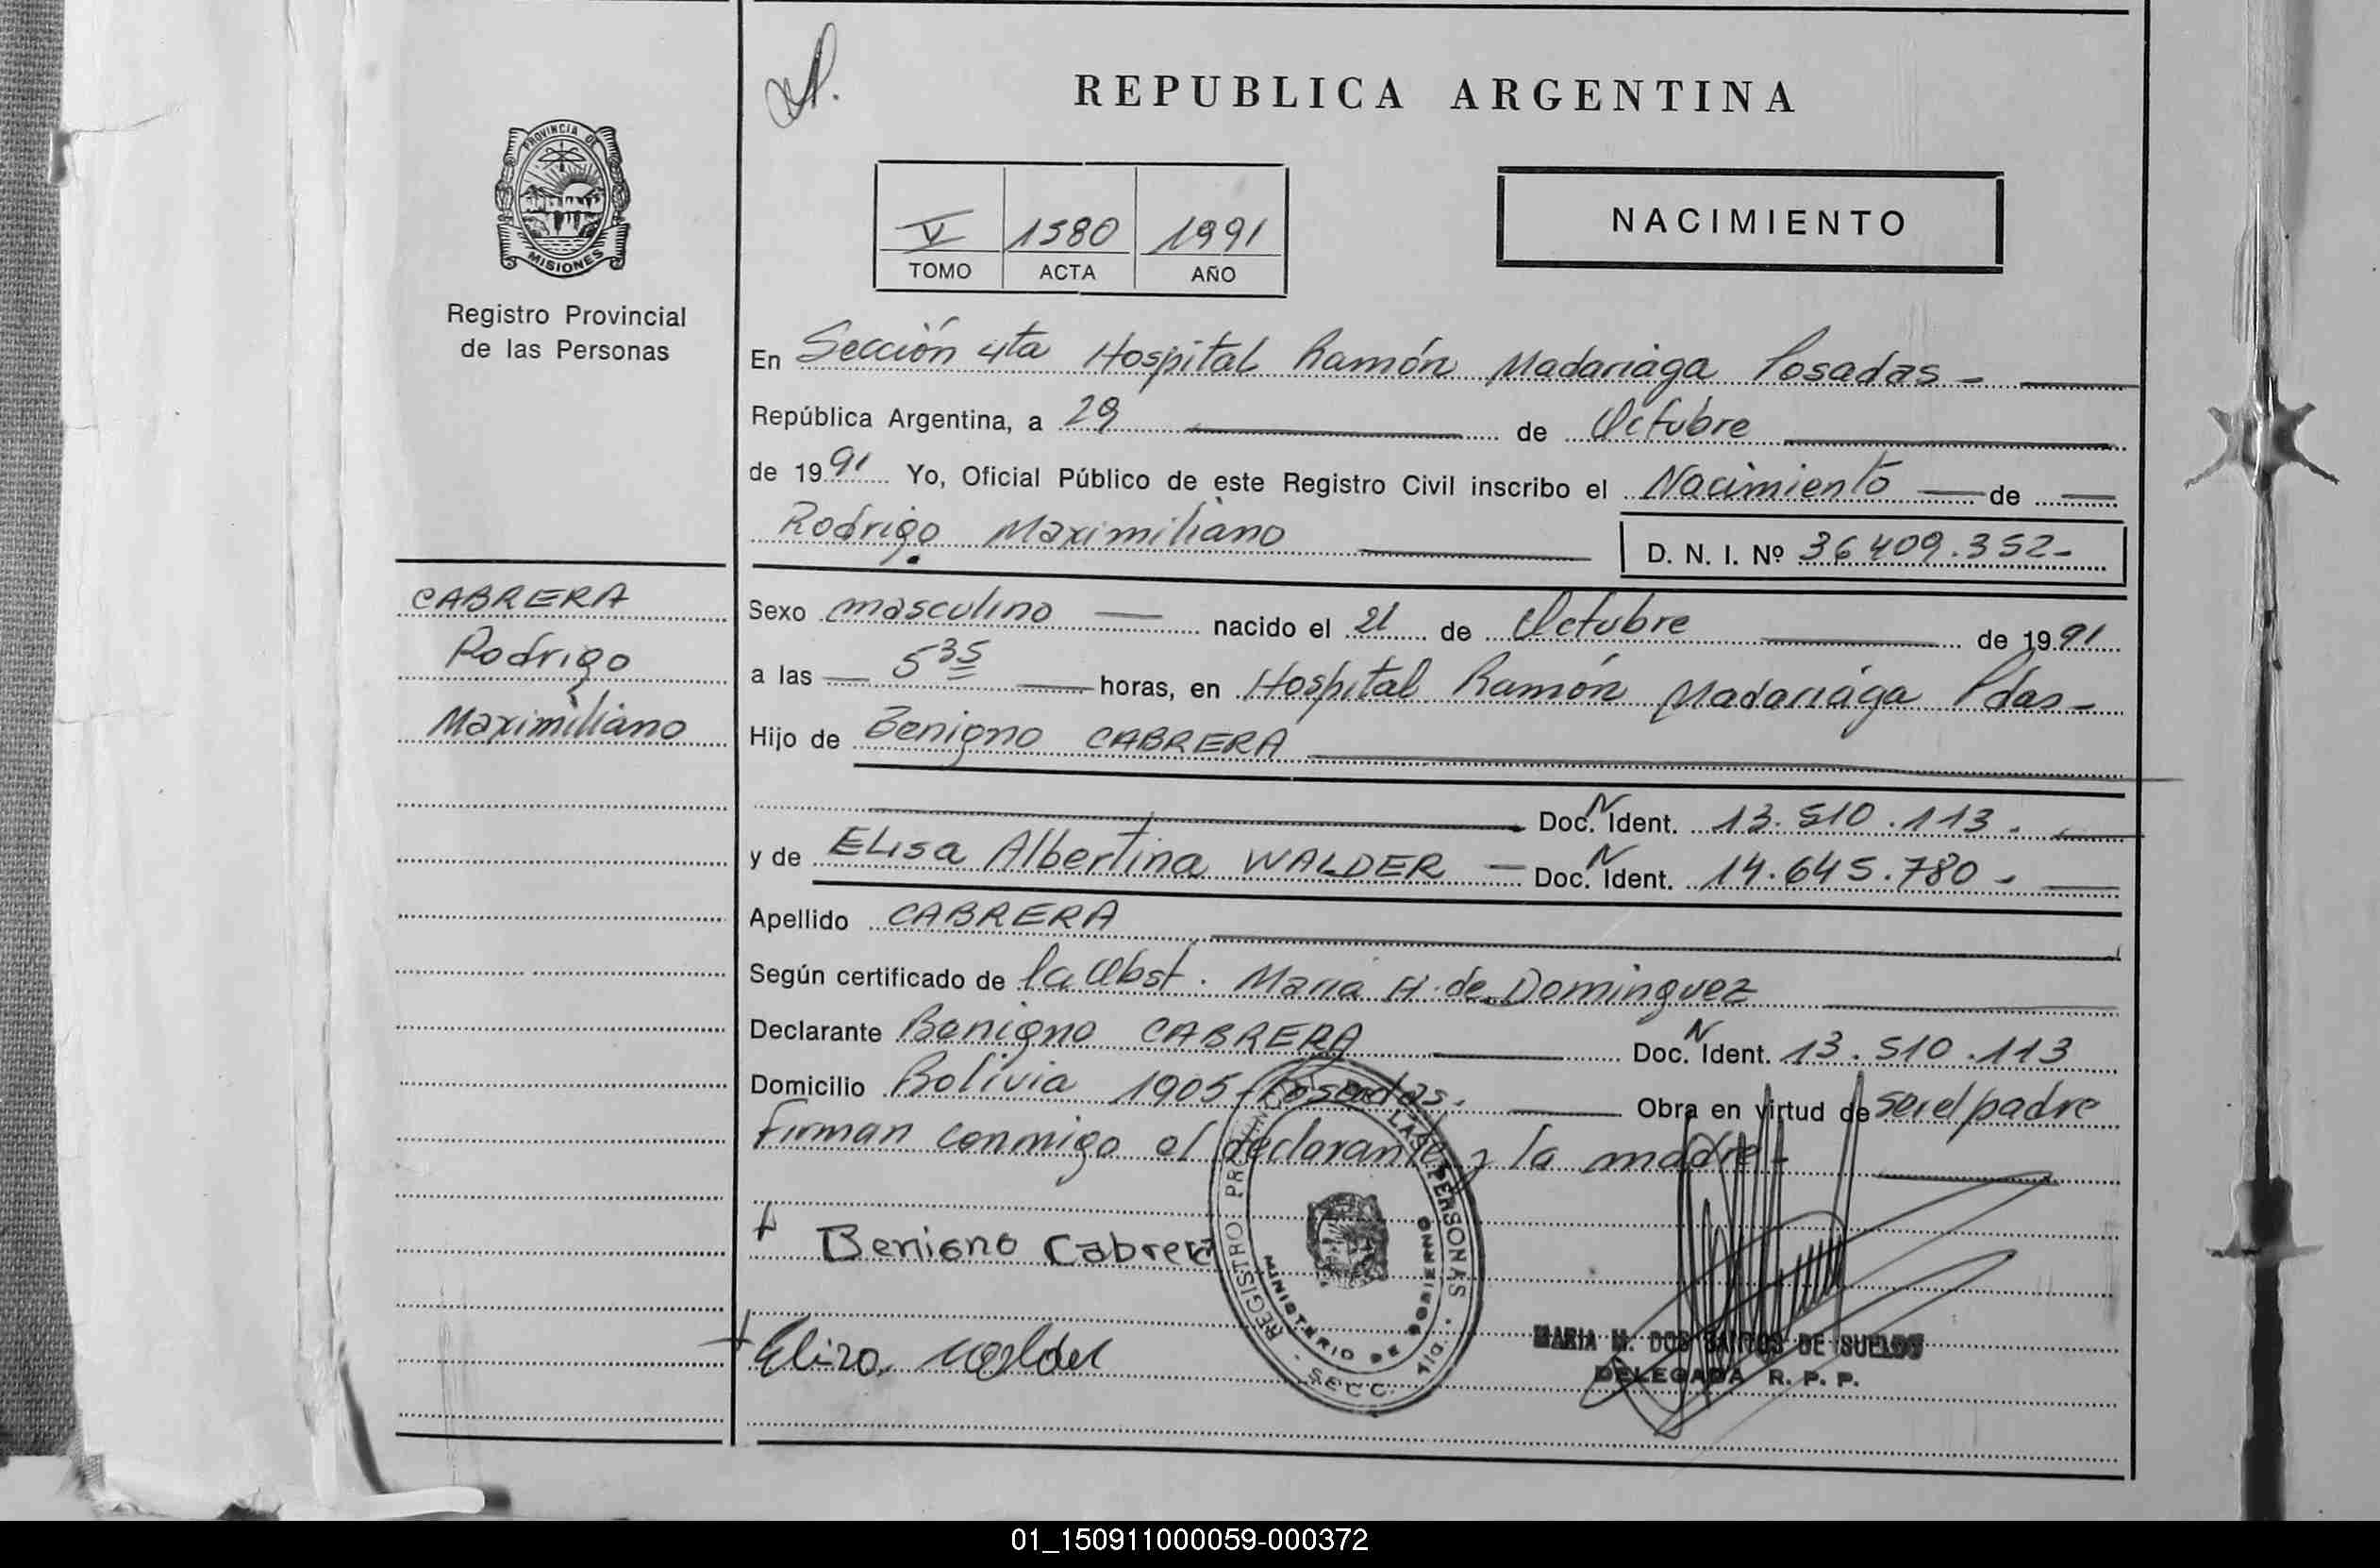 REPUBLICA ARGENTINA
PROVINCIA DE
MISIONES
Registro Provincial
de las Personas
V 1580 1991
TOMO ACTA AÑO
NACIMIENTO
En Sección 4ta Hospital Ramón Madariaga Posadas -
República Argentina, a 29 de Octubre
de 1991 Yo, Oficial Público de este Registro Civil inscribo el Nacimiento de
Rodrigo Maximiliano D. N. I. Nº 36.409.352-
CABRERA
Rodrigo
Maximiliano
Sexo masculino nacido el 21 de Octubre de 1991
a las 5 35 horas, en Hospital Ramón Madariaga Pdas-
Hijo de Benigno CABRERA
Doc. N Ident. 13.510.113.
y de ELisa Albertina WALDER Doc. N Ident. 14.645.780-
Apellido CABRERA
Según certificado de la Obst. Maria H. de Dominguez
Declarante Benigno CABRERA Doc. N Ident. 13.510.113
Domicilio Bolivia 1905 - Posadas. Obra en virtud de ser el padre
Firman conmigo el declarante y la madre-
+ Benigno Cabrera
+ Eliza Walder
REGISTRO PROVINCIAL DE LAS PERSONAS
MINISTERIO DE GOBIERNO
SECC. 4ta.
MARIA M. DOS SANTOS DE SUELDO
DELEGADA R. P. P.
01_150911000059-000372